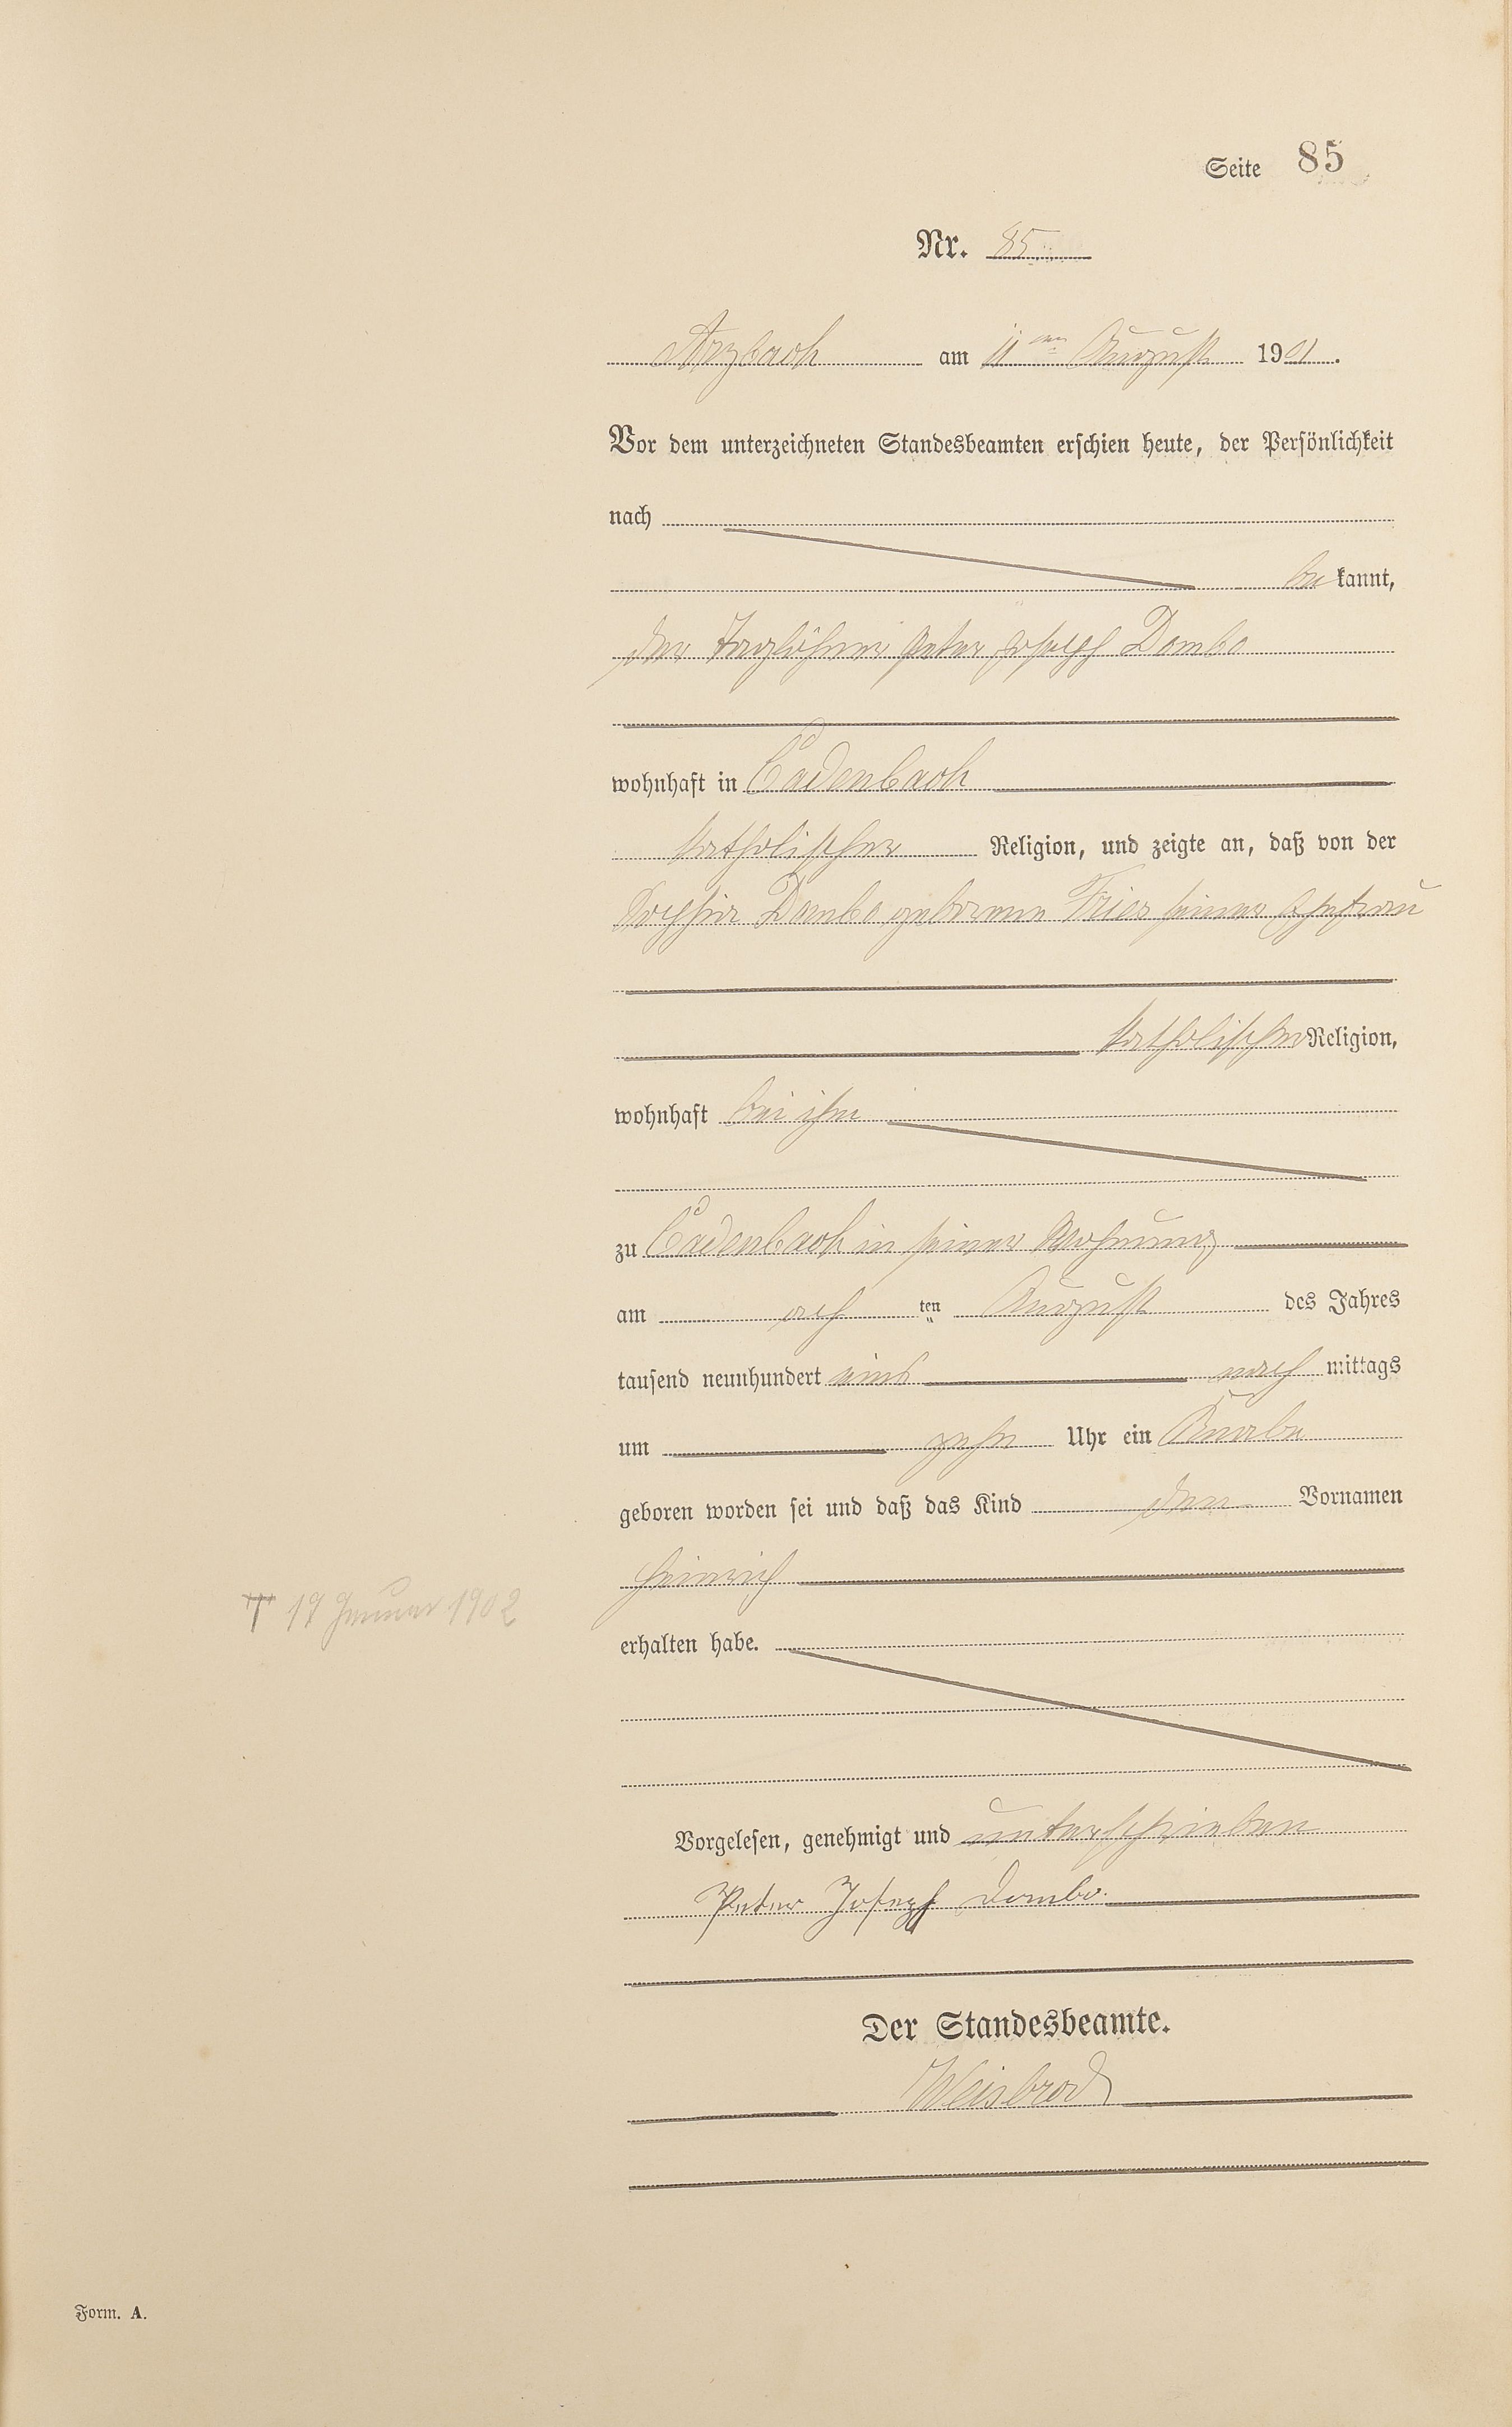 Seite 85
Nr. 85
Arzbach am 11ten August 1901.
Vor dem unterzeichneten Standesbeamten erschien heute, der Persönlichkeit
nach
bekannt,
der Taglöhner Peter Joseph Dombo
wohnhaft in Cadenbach
katholischer Religion, und zeigte an, daß von der
Sophie Dombo geborene Fries seiner Ehefrau
katholischer Religion,
wohnhaft bei ihm
zu Cadenbach in seiner Wohnung
am ach ten August des Jahres
tausend neunhundert eins nachmittags
um zehn Uhr ein Knabe
geboren worden sei und daß das Kind den Vornamen
Heinrich
† 17 Januar 1902
erhalten habe.
Vorgelesen, genehmigt und unterschrieben
Peter Joseph Dombo.
Der Standesbeamte.
Weisbrod
Form. A.